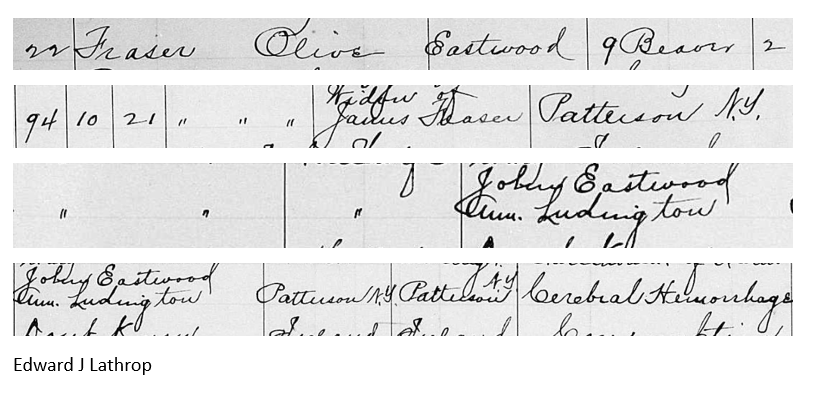 22 Fraser Olive Eastwood 9 Beaver 2
Widow of
94 10 21 " " " James Fraser Patterson N.Y.
Eastwood
" " " Ann. Ludington
Eastwood
Ann. Ludington Patterson N.Y. Patterson N.Y. Cerebral Hemorrhage
Edward J Lathrop